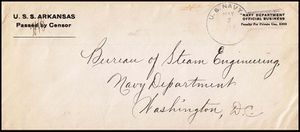 U. S. S. ARKANSAS
Passed by Censor
U.S. NAVY
NAVY DEPARTMENT
OFFICIAL BUSINESS
Penalty for Private Use, $300
Bureau of Steam Engineering
Navy Department
Washington, D.C.